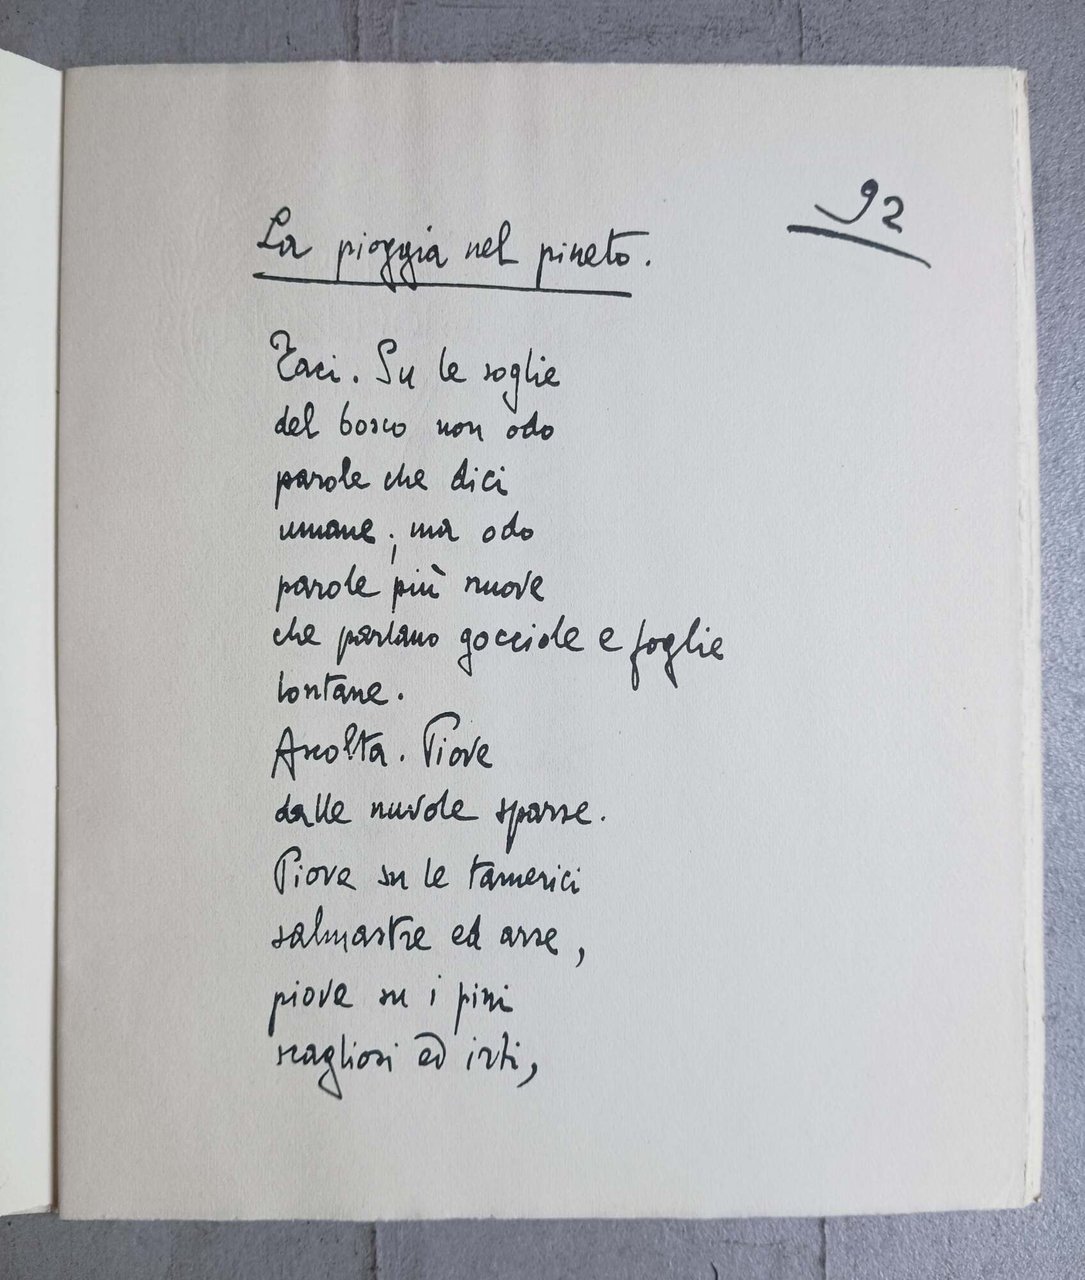 92
La pioggia nel pineto.
Taci. Su le soglie
del bosco non odo
parole che dici
umane; ma odo
parole più nuove
che parlano gocciole e foglie
lontane.
Ascolta. Piove
dalle nuvole sparse.
Piove su le tamerici
salmastre ed arse,
piove su i pini
scagliosi ed irti,